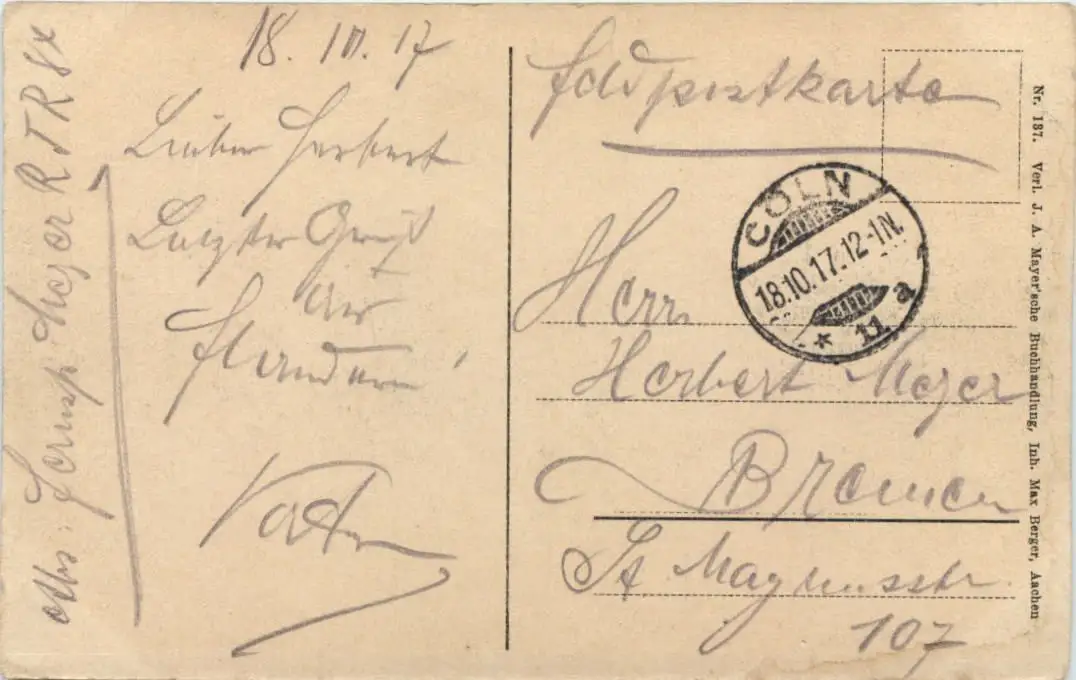 18. 10. 17
Lieber Herbert
Letzter Gruß
aus
Flandern!
Vater
Abs: Meyer R I R 84
Feldpostkarte
Herrn
Herbert Meyer
Bremen
St Magnusstr.
107
CÖLN
18.10.17.12-1N.
* 11 a
Nr. 187. Verl. J. A. Mayer'sche Buchhandlung, Inh. Max Berger, Aachen